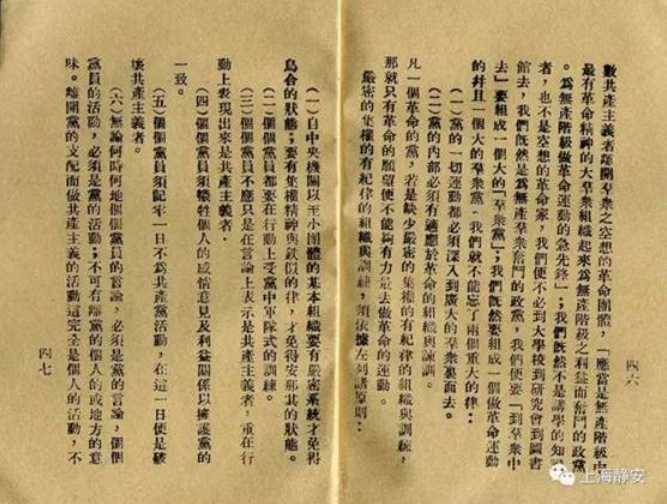 數共產主義者離開羣衆之空想的革命團體，「應當是無產階級中
最有革命精神的大羣衆組織起來爲無產階級之利益而奮鬥的政黨
。爲無產階級做革命運動的急先鋒」；我們既然不是講學的知
者，也不是空想的革命家，我們便不必到大學校到研究會到圖書
館去，我們既然是爲無產羣衆奮鬥的政黨，我們便要「到羣衆中
去」要組成一個大的「羣衆黨」；我們既然要組成一個做革命運動
的幷且一個大的羣衆黨，我們就不能忘了兩個重大的律：
（一）黨的一切運動都必須深入到廣大的羣衆裏面去。
（二）黨的內部必須有適應於革命的組織與訓練。
凡一個革命的黨，若是缺少嚴密的集權的有紀律的組織與訓練，
那就只有革命的願望便不能夠有力量去做革命的運動。
嚴密的集權的有紀律的組織與訓練，須依據左列諸原則：
四六
（一）自中央機關以至小團體的基本組織要有嚴密系統才免得
烏合的狀態；要有集權精神與鐵似的律，才免得安那其的狀態。
（二）個個黨員都要在行動上受黨中軍隊式的訓練。
（三）個個黨員不應只是在言論上表示是共產主義者，重在行
動上表現出來是共產主義者。
（四）個個黨員須犧牲個人的感情意見及利益關係以擁護黨的
一致。
（五）個個黨員須記牢，一日不爲共產黨活動，在這一日便是破
壞共產主義者。
（六）無論何時何地個個黨員的言論，必須是黨的言論，個個
黨員的活動，必須是黨的活動；不可有離黨的個人的或地方的意
味。離開黨的支配而做共產主義的活動這完全是個人的活動，不
四七
上海靜安